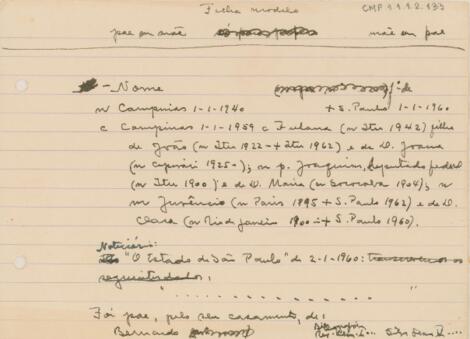 Ficha modelo
CMP 1.1.1.2.133
pae ou mãe mãe ou pae
- Nome fº de
n Campinas 1-1-1940 + S. Paulo 1-1-1960
c Campinas 1-1-1959 c Fulana (n Itu 1942) filha
de João (n Itu 1922 - + Itu 1962) e de D. Joana
(n Capivari 1925 - ); n p. Joaquim, deputado federal
(n Itu 1900) e de D. Maria (n Sorocaba 1904); n
m Juvêncio (n Paris 1895 + S. Paulo 1962) e de D.
Clara (n Rio de Janeiro 1900 - + S. Paulo 1960).
Noticiário:
"O Estado de São Paulo" de 2-1-1960:
" . . . . . . . . . . "
Foi pae, pelo seu casamento, de:
Bernardo